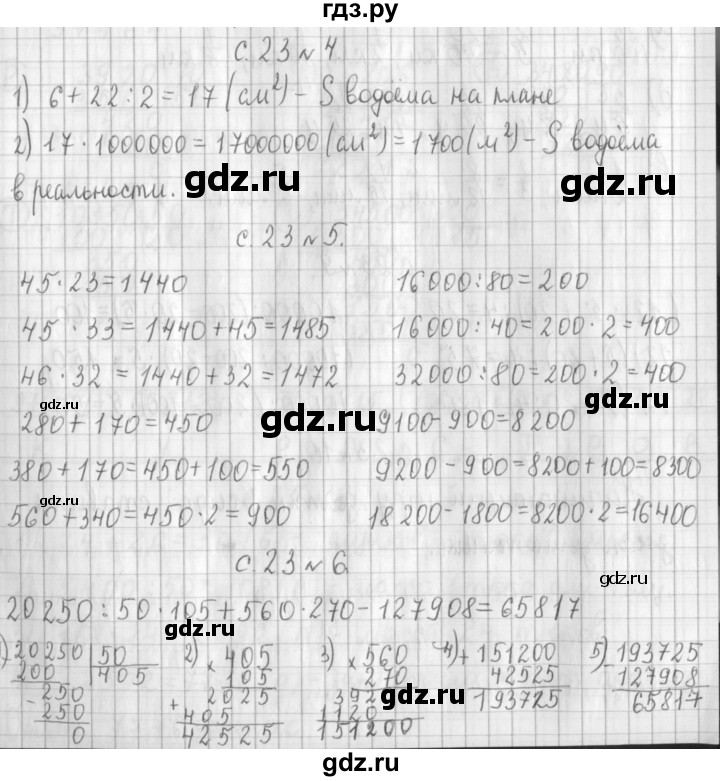 гдз.ру
с. 23 № 4.
1) 6 + 22 : 2 = 17 (см²) – S водоёма на плане
2) 17 · 1000000 = 17000000 (см²) = 1700 (м²) – S водоёма
в реальности.
gdz.ru
gdz.ru
с. 23 № 5.
45 · 23 = 1440
16000 : 80 = 200
45 · 33 = 1440 + 45 = 1485
16000 : 40 = 200 · 2 = 400
46 · 32 = 1440 + 32 = 1472
32000 : 80 = 200 · 2 = 400
gdz.ru
gdz.ru
gdz.ru
280 + 170 = 450
9100 - 900 = 8200
380 + 170 = 450 + 100 = 550
9200 - 900 = 8200 + 100 = 8300
gdz.ru
560 + 340 = 450 · 2 = 900
18200 - 1800 = 8200 · 2 = 16400
с. 23 № 6
gdz.ru
20250 : 50 · 105 + 560 · 270 - 127908 = 65817
gdz.ru
1) - 20250 | 50
200 405
250
- 250
0
2) × 405
105
2025
+ 405
42525
3) × 560
270
392
1120
151200
4) + 151200
42525
193725
5) - 193725
127908
65817
gdz.ru
gdz.ru